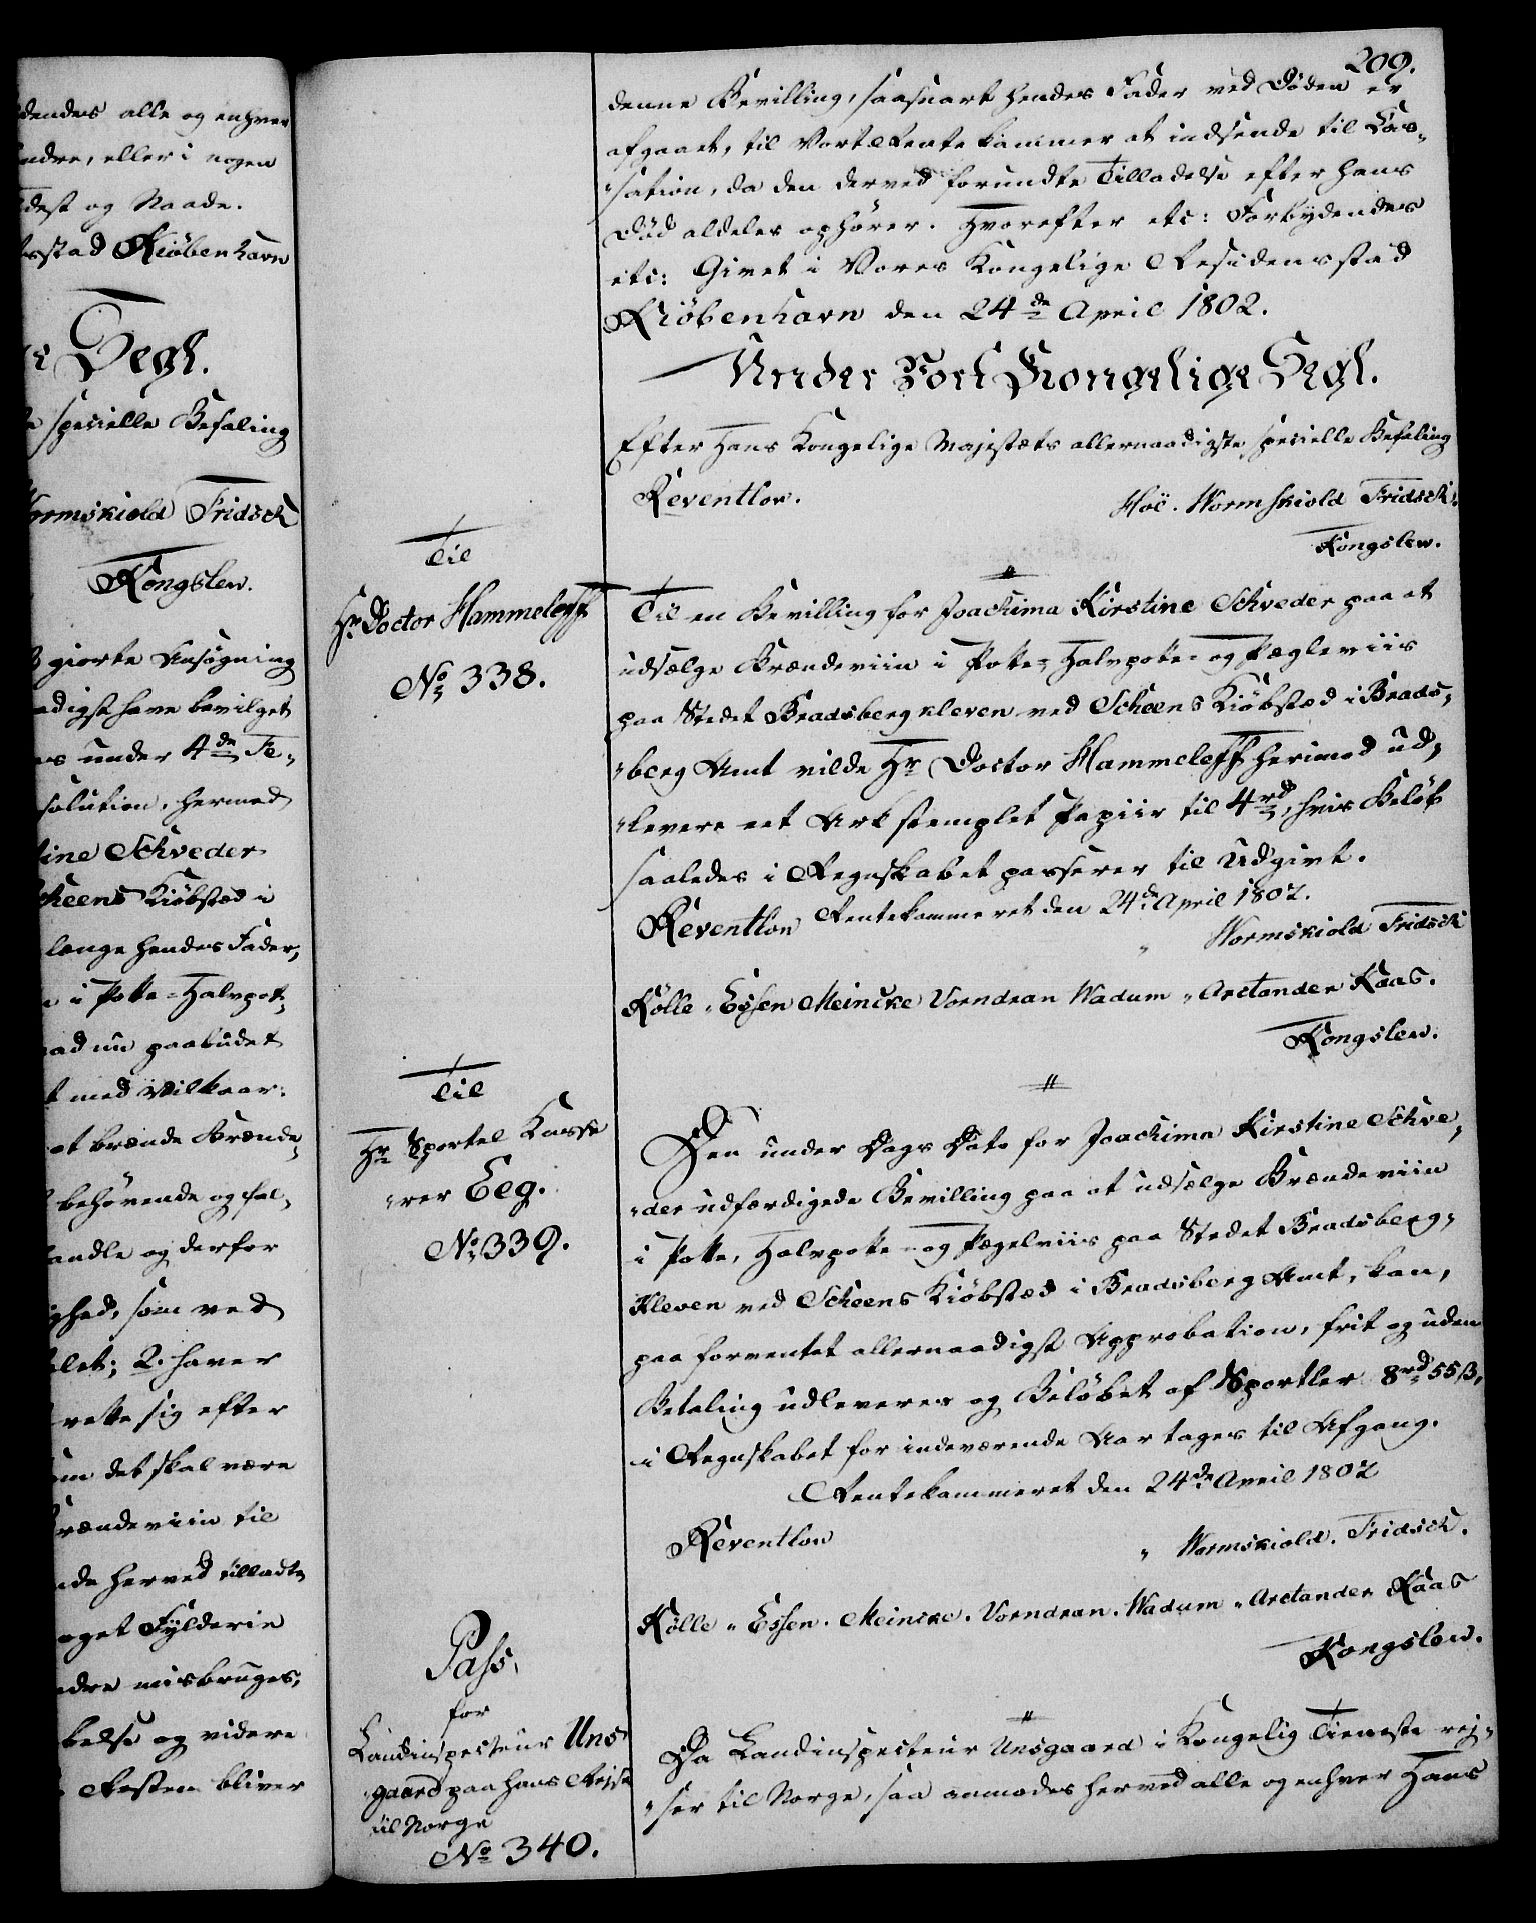 dendes alle og enhver
ndre, eller i nogen
dest og Naade.
sstad Kiöbenhavn
Segl.
specielle Befaling
ormskiold Fridsch
Kongslew.
giorte Ansøgning
adigst have bevilget
es under 4de Fe-
solution, hermed
tine Schveder
cheens Kiöbstæd i
længe hendes Fader,
i Potte- Halvpot-
ad nu paabudet
t med Vilkaar:
at brænde Brænde-
behövende og fal-
andle og derfor
ghed, som ved
let; 2. haver
rette sig efter
om det skal være
rændeviin til
nde herved tilladte
oget Fylderie
ndre misbruges,
belse og videre
Resten bliver
209.
denne Bevilling, saasnart hendes Fader ved Döden er
afgaaet, til Vort Rentekammer at indsende til Cas-
sation, da den derved forundte Tilladelse efter hans
Död aldeles ophörer. Hvorefter etc: Forbydendes
etc: Givet i Vores Kongelige Residensstad
Kiöbenhavn den 24de April 1802.
Under Vort Kongelige Segl.
Efter Hans Kongelige Majestæts allernaadigste specielle Befaling
Reventlow. Hoë. Wormskiold Fridsch.
Kongslew.
Til
Hr Doctor Hammeleff
No 338.
Til en Bevilling for Joachima Kirstine Schveder paa at
udsælge Brændeviin i Potte- Halvpotte- og Pægleviis
paa Stedet Bradsbergkleven ved Scheens Kiöbstæd i Brads-
berg Amt vilde Hr Doctor Hammeleff herimod ud-
levere eet Ark stemplet Papiir til 4rd, hvis Belöb
saaledes i Regnskabet passerer til Udgivt.
Rentekammeret den 24de April 1802.
Reventlow " Wormskiold Fridsch
Kölle " Essen Meincke Vorndran Wadum " Arctander Kaas.
Kongslew.
Til
Hr Sportel Kasse
rer Eeg.
No 339.
Den under Dags Dato for Joachima Kirstine Schve-
der udfærdigede Bevilling paa at udsælge Brændeviin
i Potte, Halvpotte- og Pægelviis paa Stedet Bradsberg-
Kleven ved Scheens Kiöbstæd i Bradsberg Amt, kan,
paa forventet allernaadigst Approbation, frit og uden
Betaling udleveres og Belöbet af Sportler 8rd 55ß,
i Regnskabet for indeværende Aar tages til Afgang.
Rentekammeret den 24de April 1802
Reventlow " Wormskiold. Fridsch.
Kölle " Essen. Meincke. Vorndran. Wadum " Arctander Kaas
Kongslew.
Pass,
for
Landinspecteur Uns
gaard paa hans Reise
til Norge
No 340.
Da Landinspecteur Unsgaard i Kongelig Tieneste rej-
ser til Norge, saa anmodes herved alle og enhver Hans